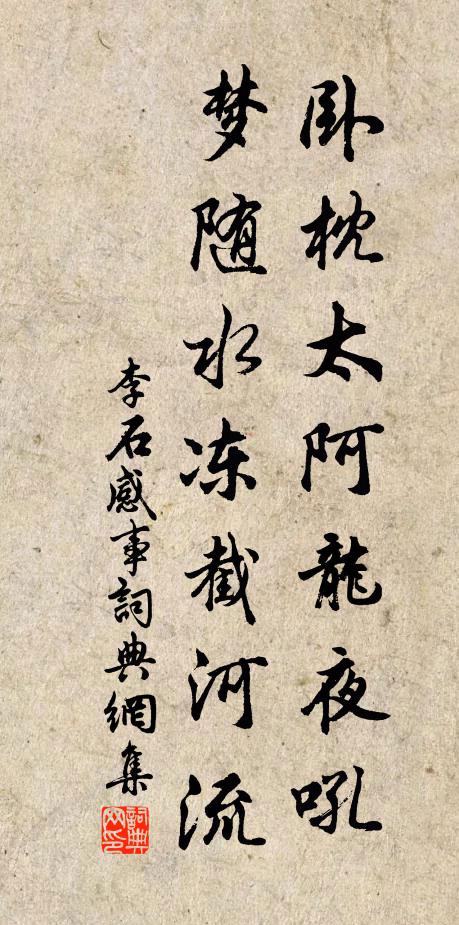 卧枕太阿龍夜吼
梦随水冻截河流
李石感事詞典網集
詞典网印